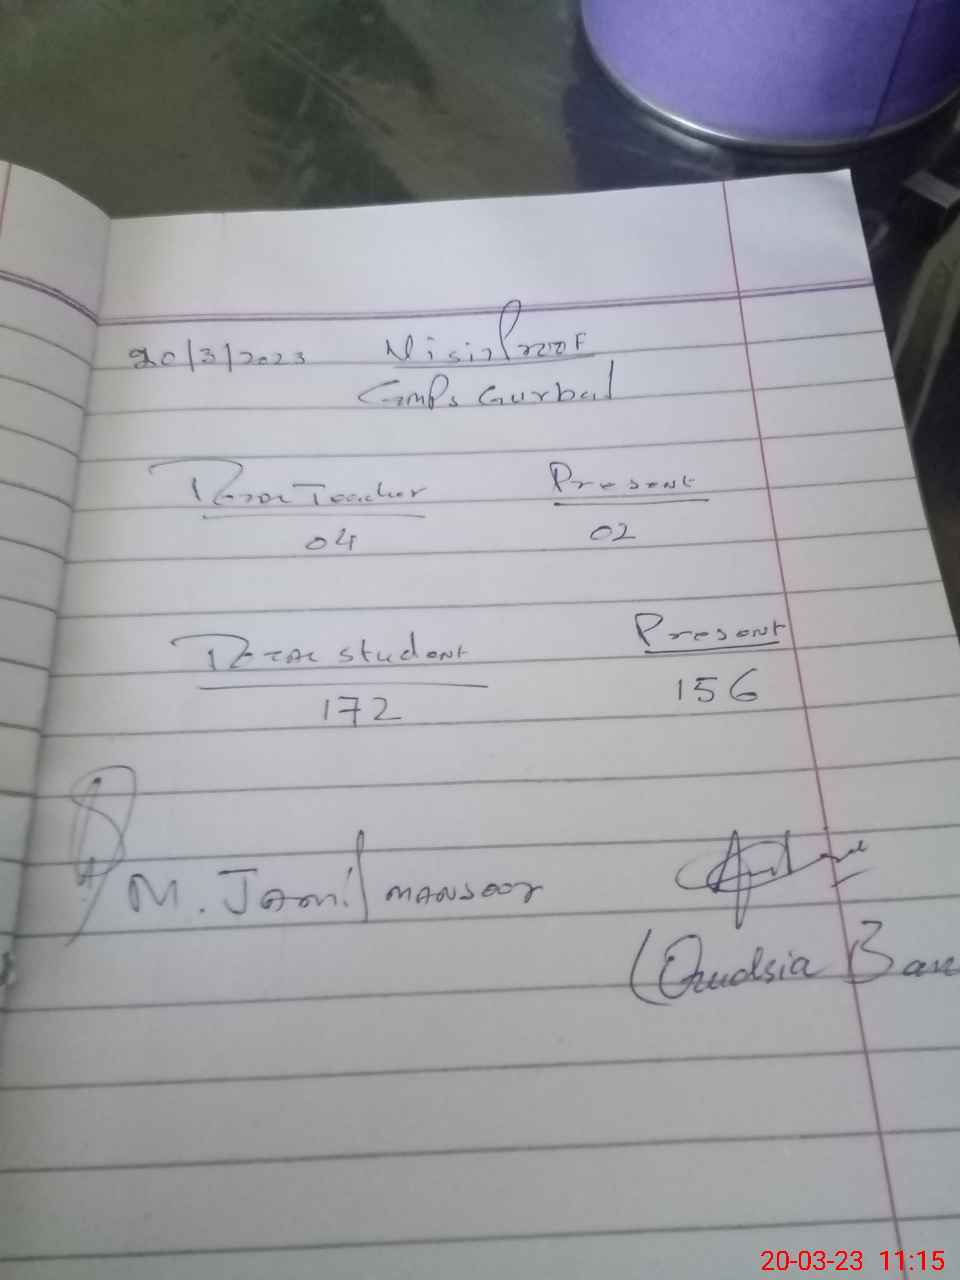 20/3/2023 Visit Proof
GMPS Gurbal
Total Teacher Present
04 02
Total student Present
172 156
M. Jamil MANSOOR
(Qudsia Ban
20-03-23 11:15